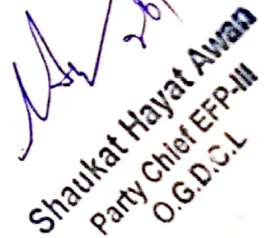 Shaukat Hayat Awan
Party Chief EFP-III
O.G.D.C.L